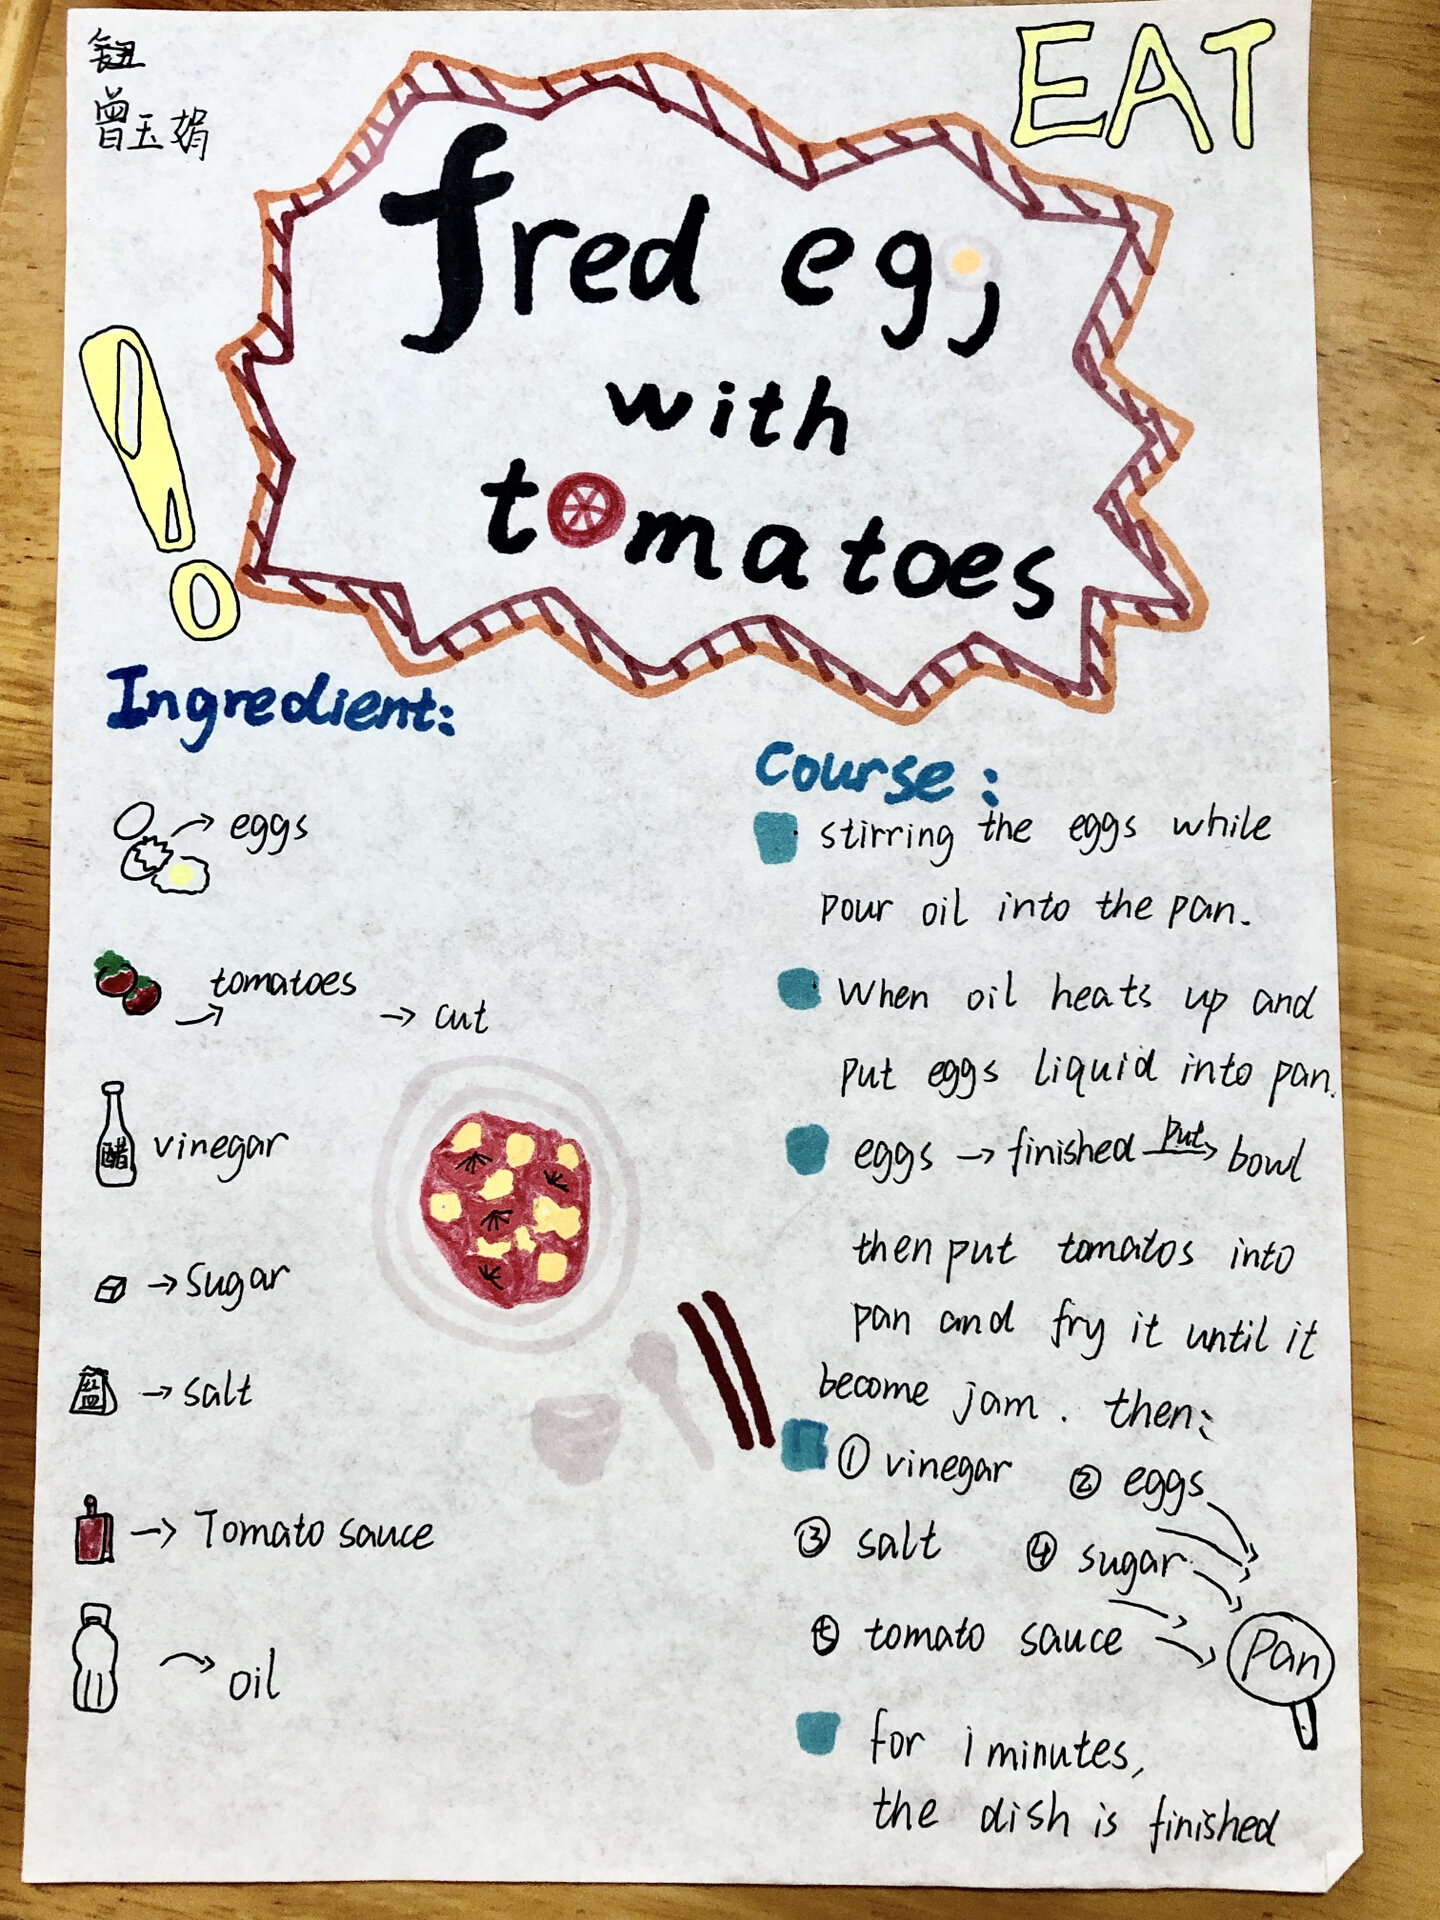 曾玉娟
EAT
fred egg
with
tomatoes
Ingredient:
eggs
tomatoes → cut
醋 vinegar
→ sugar
盐 → salt
→ Tomato sauce
→ oil
Course:
stirring the eggs while
pour oil into the pan.
When oil heats up and
put eggs liquid into pan.
eggs → finished put→ bowl
then put tomatos into
pan and fry it until it
become jam. then:
① vinegar ② eggs
③ salt ④ sugar
⑤ tomato sauce
Pan
for 1 minutes,
the dish is finished